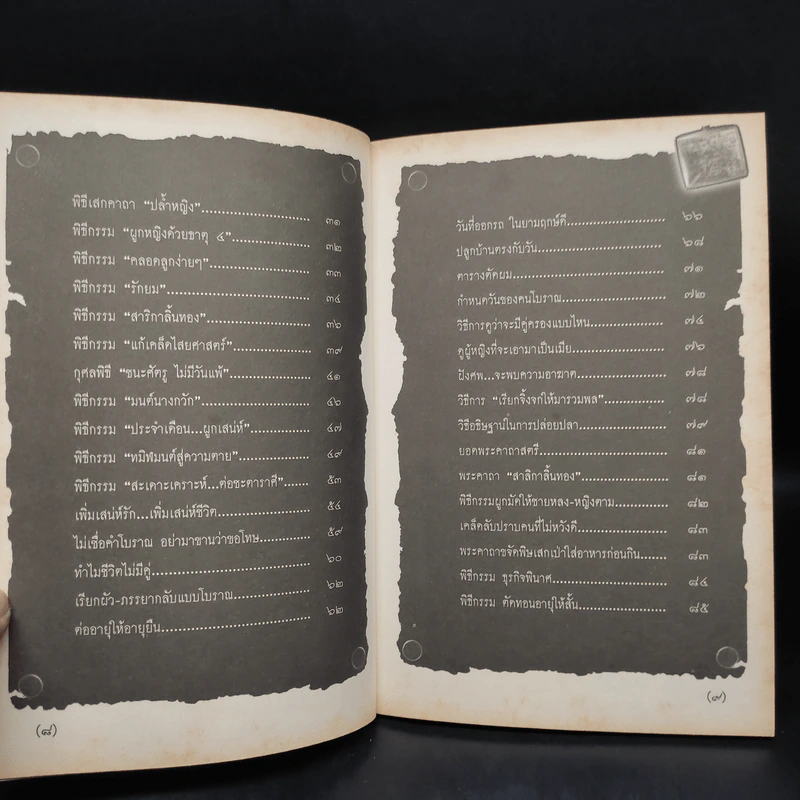 พิธีเสกคาถา “ปล้ำหญิง”........................ ๓๑
พิธีกรรม “ผูกหญิงด้วยธาตุ ๔”.................. ๓๒
พิธีกรรม “คลอดลูกง่ายๆ”........................ ๓๓
พิธีกรรม “รักยม”........................ ๓๔
พิธีกรรม “สาริกาลิ้นทอง”........................ ๓๖
พิธีกรรม “แก้เคล็ดไสยศาสตร์”........................ ๓๙
กุศลพิธี “ชนะศัตรู ไม่มีวันแพ้”........................ ๔๑
พิธีกรรม “มนต์นางกวัก”........................ ๔๖
พิธีกรรม “ประจำเดือน...ผูกเสน่ห์”.................. ๔๗
พิธีกรรม “ทมิฬมนต์สู่ความตาย”.................. ๔๙
พิธีกรรม “สะเดาะเคราะห์...ต่อชะตาราศี”...... ๕๓
เพิ่มเสน่ห์รัก...เพิ่มเสน่ห์ชีวิต........................ ๕๔
ไม่เชื่อคำโบราณ อย่ามาขานว่าขอโทษ............ ๕๙
ทำไมชีวิตไม่มีคู่........................ ๖๐
เรียกผัว-ภรรยากลับแบบโบราณ.................. ๖๒
ต่ออายุให้อายุยืน........................ ๖๒
(๘)
วันที่ออกรถ ในยามฤกษ์ดี........................ ๖๖
ปลูกบ้านตรงกับวัน........................ ๖๘
ตารางตัดผม........................ ๗๑
กำหนดวันของคนโบราณ........................ ๗๒
วิธีการดูว่าจะมีคู่ครองแบบไหน.................. ๗๔
ดูผู้หญิงที่จะเอามาเป็นเมีย........................ ๗๖
ฝังศพ...จะพบความอาฆาต........................ ๗๘
วิธีการ “เรียกจิ้งจกให้มารวมพล”.................. ๗๘
วิธีอธิษฐานในการปล่อยปลา........................ ๗๙
ยอดพระคาถาสตรี........................ ๘๑
พระคาถา “สาลิกาลิ้นทอง”........................ ๘๑
พิธีกรรมผูกมัดให้ชายหลง-หญิงตาม............ ๘๒
เคล็ดลับปราบคนที่ไม่หวังดี........................ ๘๓
พระคาถาขจัดพิษเสกเป่าใส่อาหารก่อนกิน...... ๘๓
พิธีกรรม ธุรกิจพินาศ........................ ๘๔
พิธีกรรม ตัดทอนอายุให้สั้น........................ ๘๕
(๙)